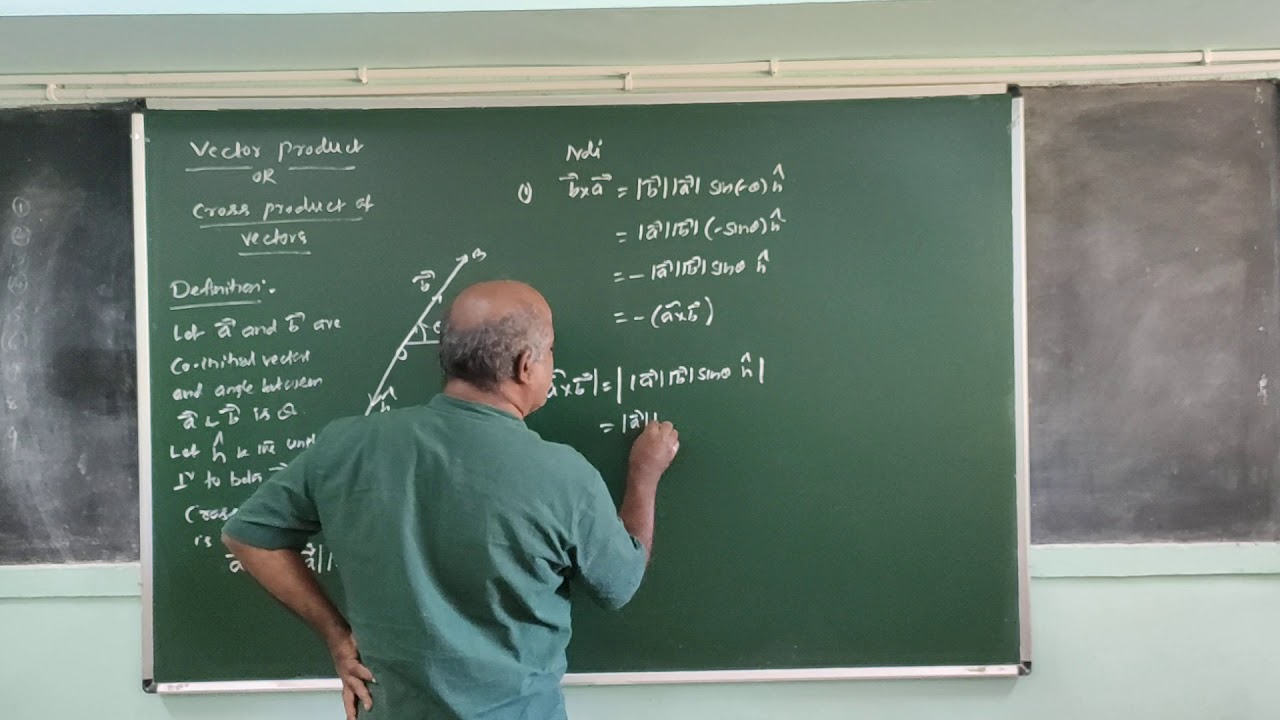 Vector product
OR
Cross product of
vectors
Definition:-
Let a⃗ and b⃗ are
Co-initial vector
and angle between
a⃗ & b⃗ is θ
Let n̂ is the unit
⊥r to both
Cross
is
a⃗ a⃗| |
b⃗
B
θ
O
n̂
Note
(1) b⃗×a⃗ = |b⃗| |a⃗| sin(-θ) n̂
= |a⃗| |b⃗| (-sinθ) n̂
= - |a⃗| |b⃗| sinθ n̂
= - (a⃗×b⃗)
a⃗×b⃗| = | |a⃗| |b⃗| sinθ n̂ |
= |a⃗| |